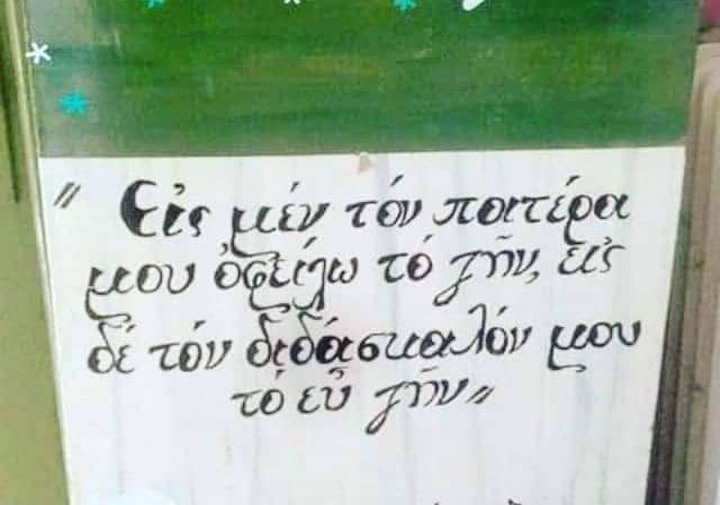 " Εἰς μέν τόν πατέρα
μου ὀφείλω τό ζῆν, εἰς
δέ τόν διδάσκαλόν μου
τό εὖ ζῆν "